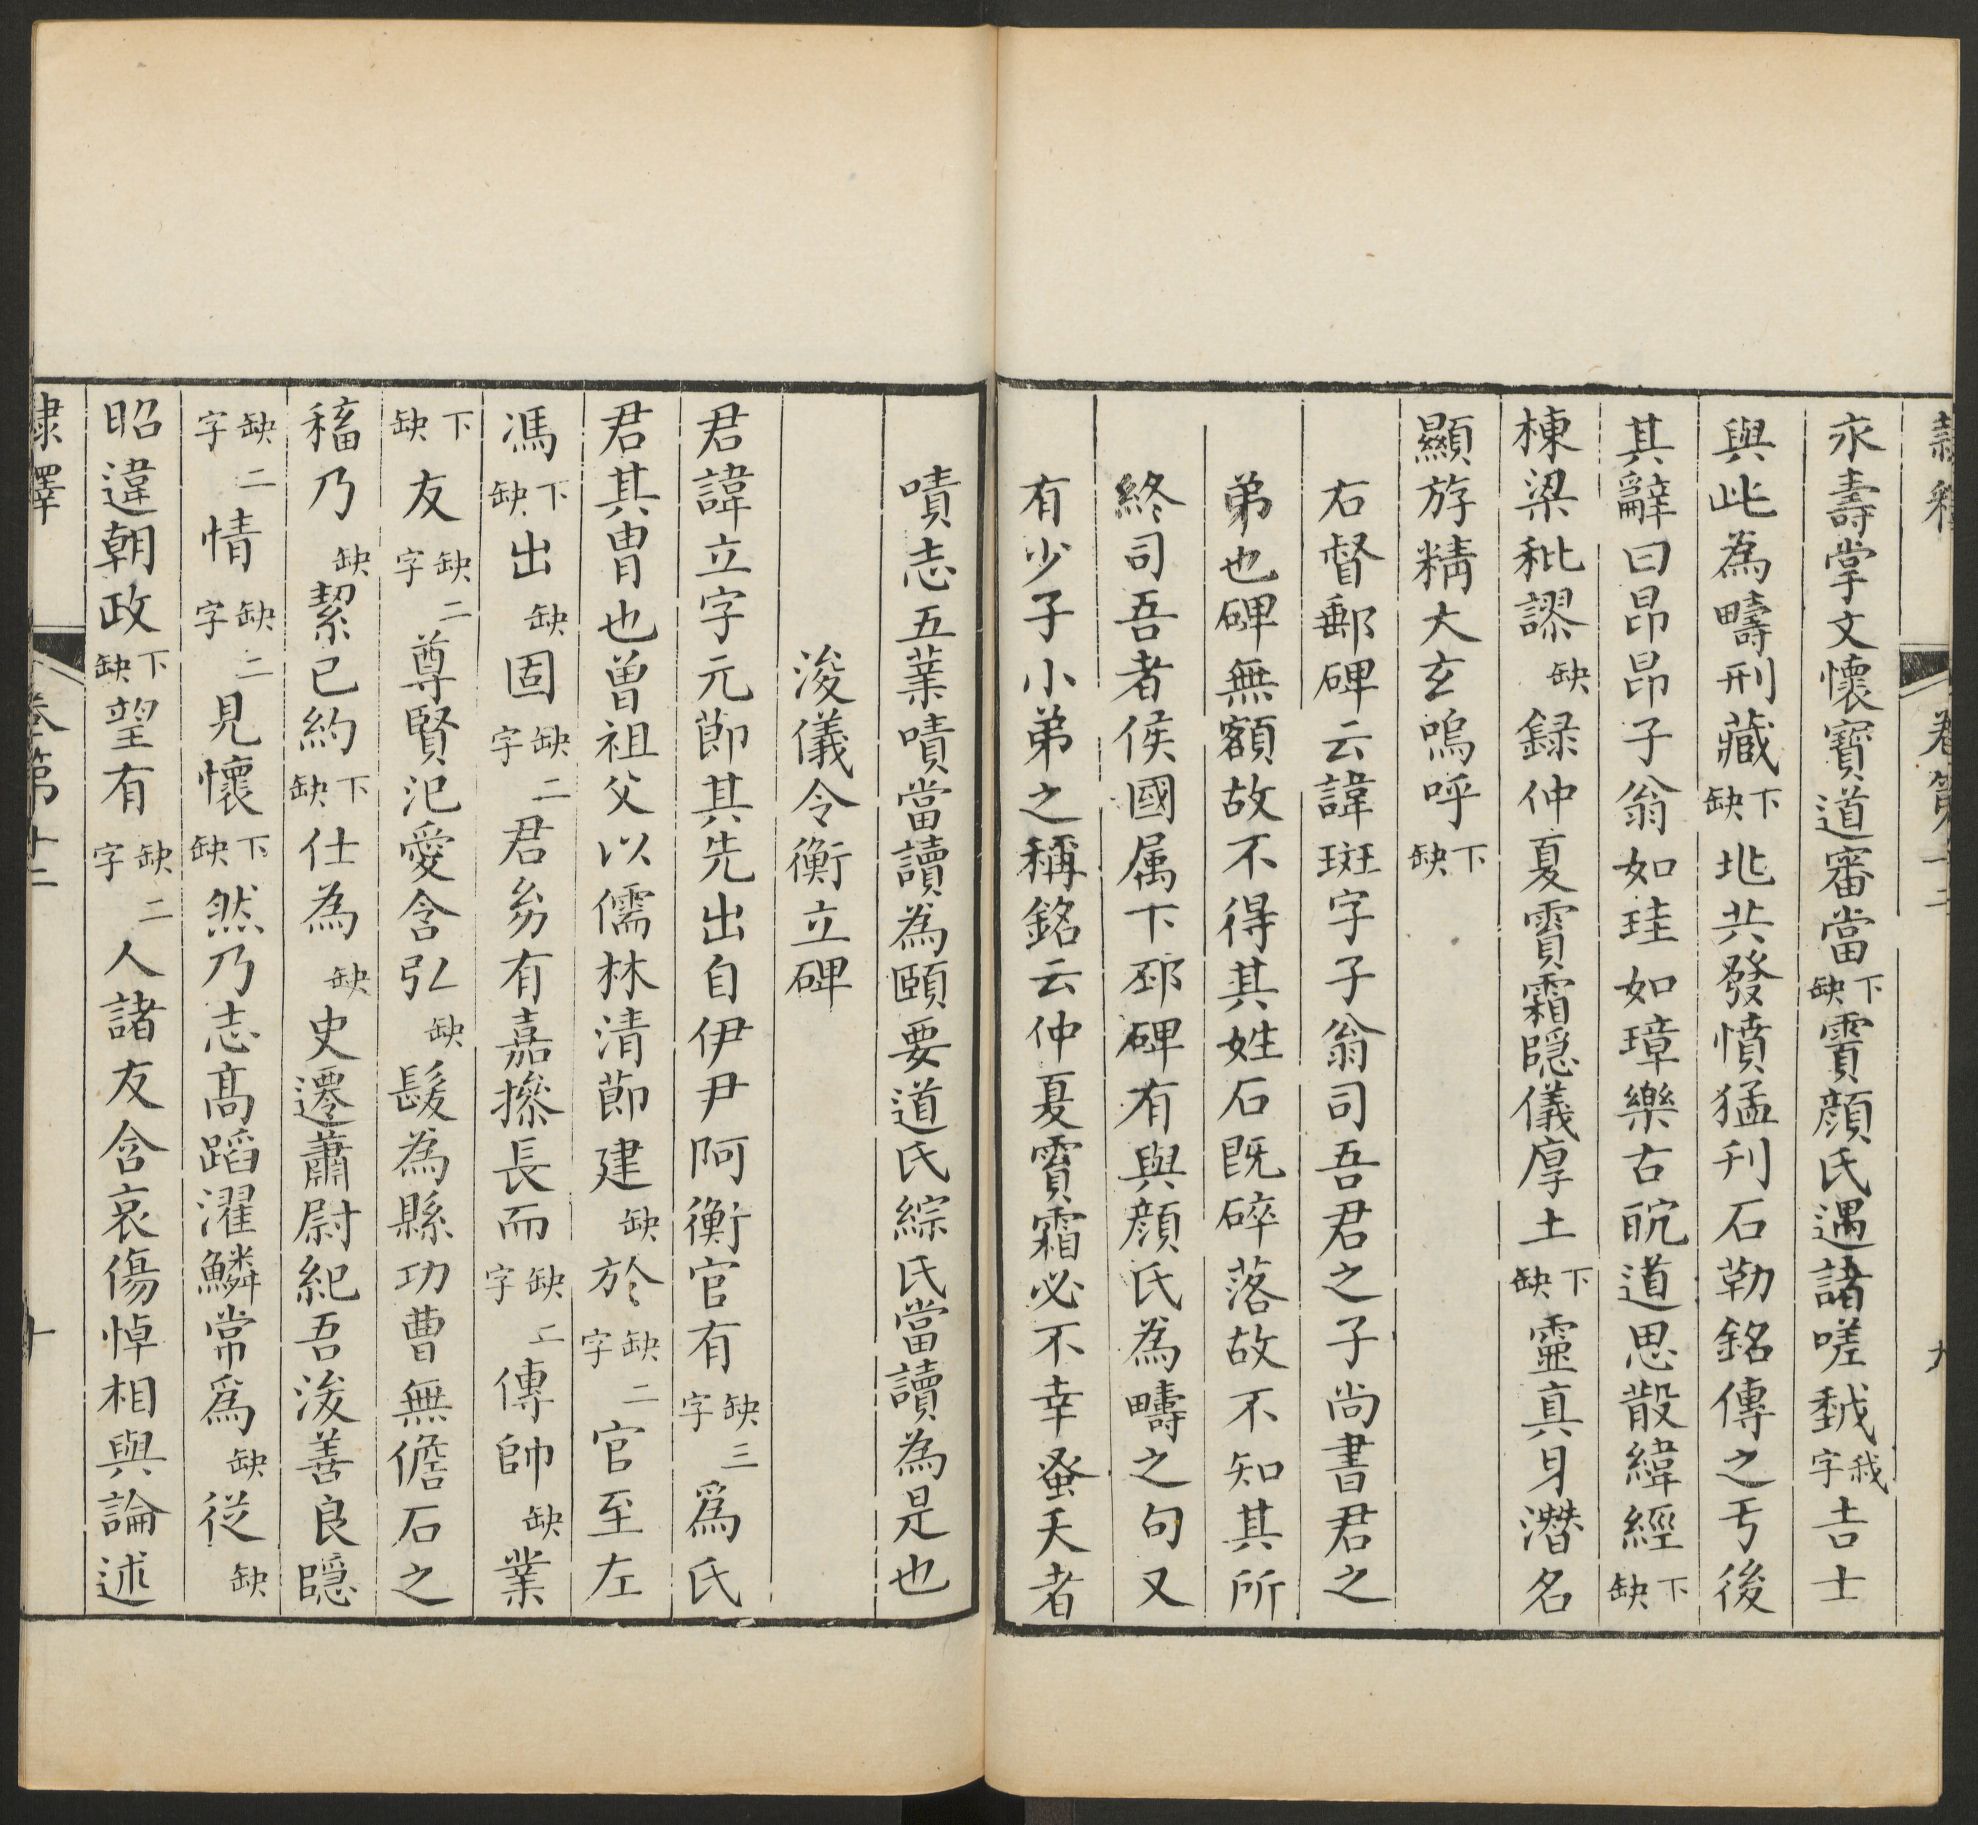 隸釋 卷第十二 九
永壽掌文懷寶道審當下缺賈顏氏遇諸嗟㦲字我吉士
與此為疇刑藏下缺兆共發憤猛刋石勒銘傳之亐後
其辭曰昂昂子翁如珪如璋樂古㽘道思散緯經下缺
棟梁秕謬缺録仲夏霣霜隱儀厚土下缺靈真身潛名
顯斿精大玄嗚呼下缺
右督郵碑云諱斑字子翁司吾君之子尚書君之
弟也碑無額故不得其姓石既碎落故不知其所
終司吾者侯國属下邳碑有與顏氏為疇之句又
有少子小弟之稱銘云仲夏霣霜必不幸蚤夭者
嘖志五業嘖當讀為頤要道氏綜氏當讀為是也
浚儀令衡立碑
君諱立字元節其先出自伊尹阿衡官有缺三字爲氏
君其冑也曾祖父以儒林清節建缺於缺二字官至左
馮下缺出缺固缺二字君㓜有嘉摻長而缺二字傳帥缺業
下缺友缺二字尊賢汜愛含弘缺髮為縣功曹無儋石之
稸乃缺絜已約下缺仕為缺史遷蕭尉紀吾浚善良隱
缺二字情缺二字見懷下缺然乃志髙蹈濯鱗常爲缺從缺
昭違朝政下缺望有缺二字人諸友含哀傷悼相與論述
隸釋 卷第十二 十